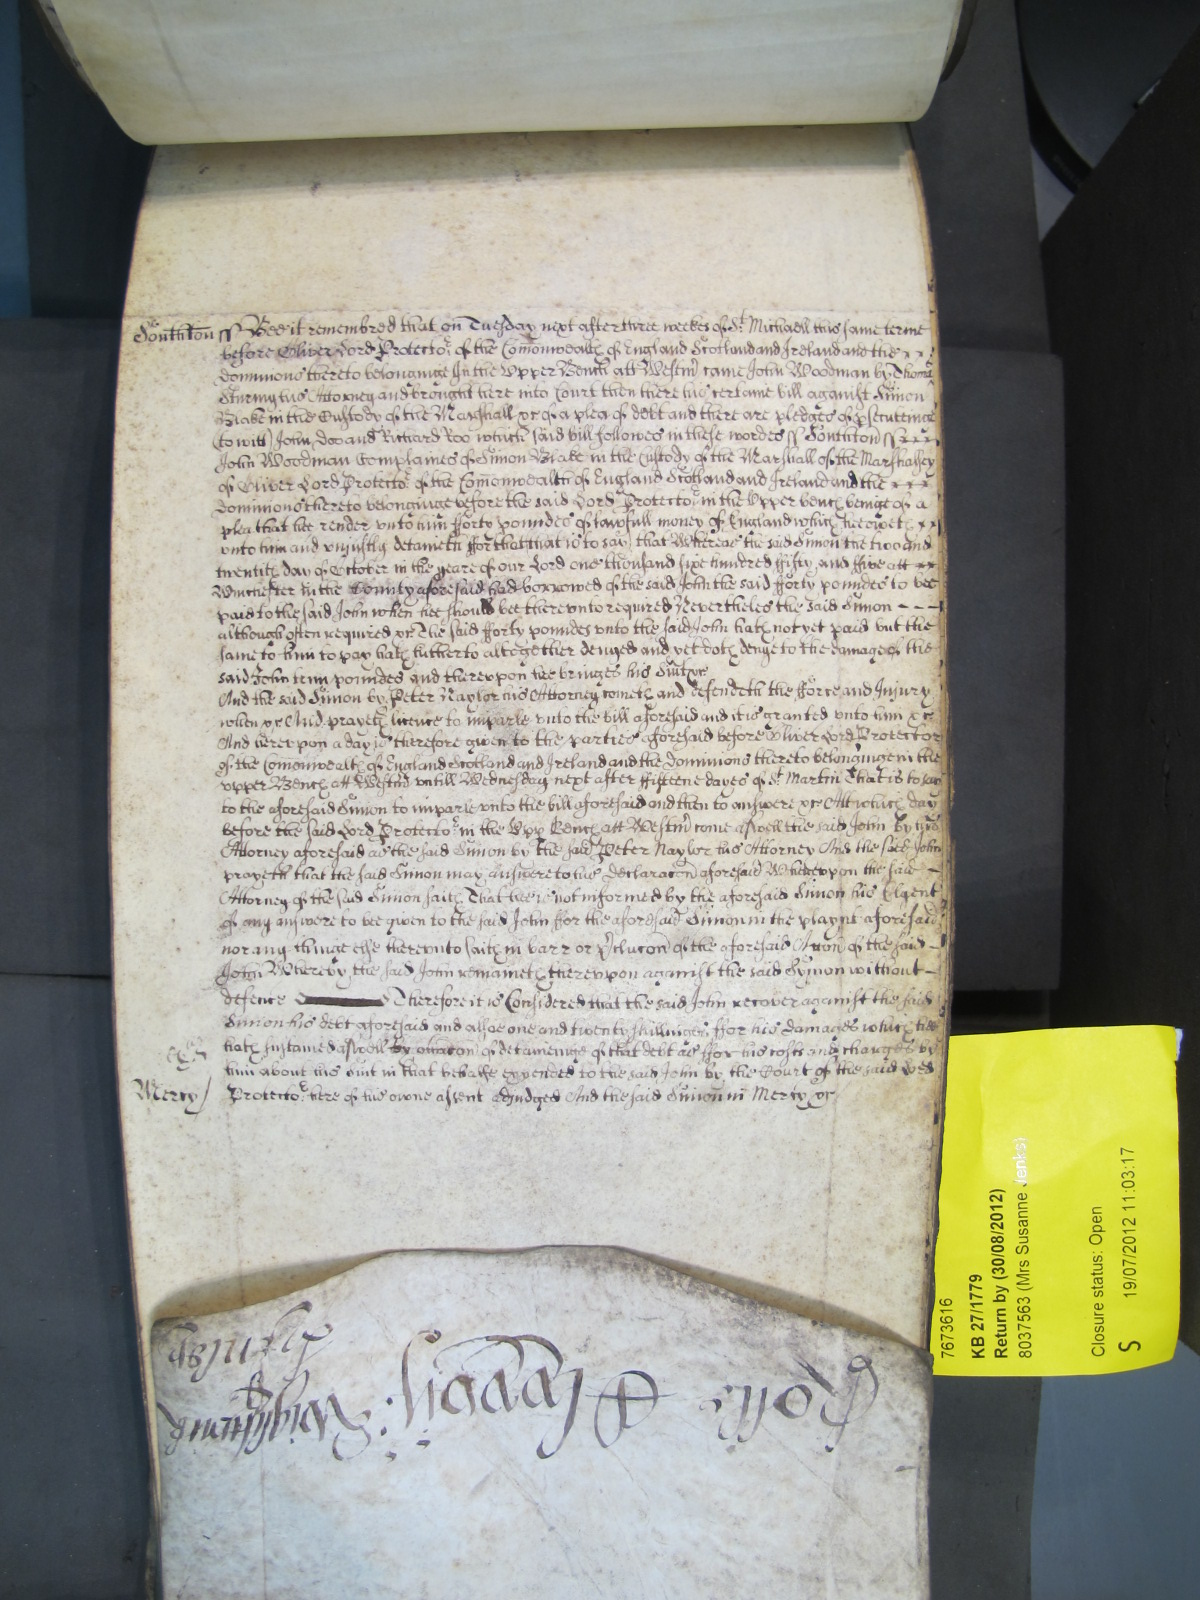 Southton ss Bee it remembred that on Tuesday next after three weekes of St Michaell this same terme
before Oliver Lord Protector of the Comonwealth of England Scotland and Ireland and the
Dominions thereto belonginge In the Upper Bench att Westmr came John Woodman by Thomas
his Attorney and brought here into Court then there his certaine bill against Simon
Blake in the Custody of the Marshall &c of a plea of debt and there are pledges of psecuteinge
(to witt) John Doo and Richard Roo which said bill followes in these wordes ss Southton ss
John Woodman Complaines of Simon Blake in the Custody of the Marshall of the Marshalsey
of Oliver Lord Protector of the Comonwealth of England Scotland and Ireland and the
Dominions thereto belonginge before the said Lord Protector in the Upper bench beinge of a
plea that hee render unto him fforty poundes of lawfull money of England which hee oweth
unto him and uniustly detaineth ffor that that is to say that Whereas the said Simon the two and
twentith day of October in the yeare of our Lord one thousand sixe hundred fifty and ffive att
Winchester in the County aforesaid had borrowed of the said John the said fforty poundes to bee
paid to the said John when hee should bee thereunto required Neverthelesse the said Simon
although often required &c The said fforty poundes unto the said John hath not yet paid but the
same to him to pay hath hitherto altogether denyed and yet doth denye to the damage of the
said John tenn poundes and thereupon hee bringes his Suite &c
And the said Simon by Peter Naylor his Attorney cometh and defendeth the fforce and Injury
when &c And prayeth licence to imparle unto the bill aforesaid and it is granted unto him &c
And hereupon a day is therefore given to the parties aforesaid before Oliver Lord Protector
of the Comonwealth of England Scotland and Ireland and the Dominions thereto belonginge in the
upper Bench att Westmr untill Wednesday next after ffifteene dayes of St Martin That is to say
to the aforesaid Simon to imparle unto the bill aforesaid and then to answere &c Att which day
before the said Lord Protector in the Upp Bench att Westmr come aswell the said John by his
Attorney aforesaid as the said Simon by the said Peter Naylor his Attorney And the said John
prayeth that the said Simon may answere to his declaracon aforesaid Whereupon the said
Attorney of the said Simon saith That hee is not informed by the aforesaid Simon his Clyent
of any answere to bee given to the said John ffor the aforesaid Simon in the playnt aforesaid
nor any thinge else thereunto saith in barr or pclucon of the aforesaid Accon of the said
John Whereby the said John remaineth thereupon against the said Symon without
defence Therefore it is Considered that the said John recover against the said
Simon his debt aforesaid and alsoe one and twenty shillinges ffor his damages which hee
hath sustained aswell by occacon of detaineinge of that debt as ffor his costs and charges by
him about his suit in that behalfe expended to the said John by the Court of the said Lord
Mercy Protector here of his owne assent adjudged And the said Simon in Mercy &c
7673616
KB 27/1779
Return by (30/08/2012)
8037563 (Mrs Susanne Jenks)
Closure status: Open
S 19/07/2012 11:03:17